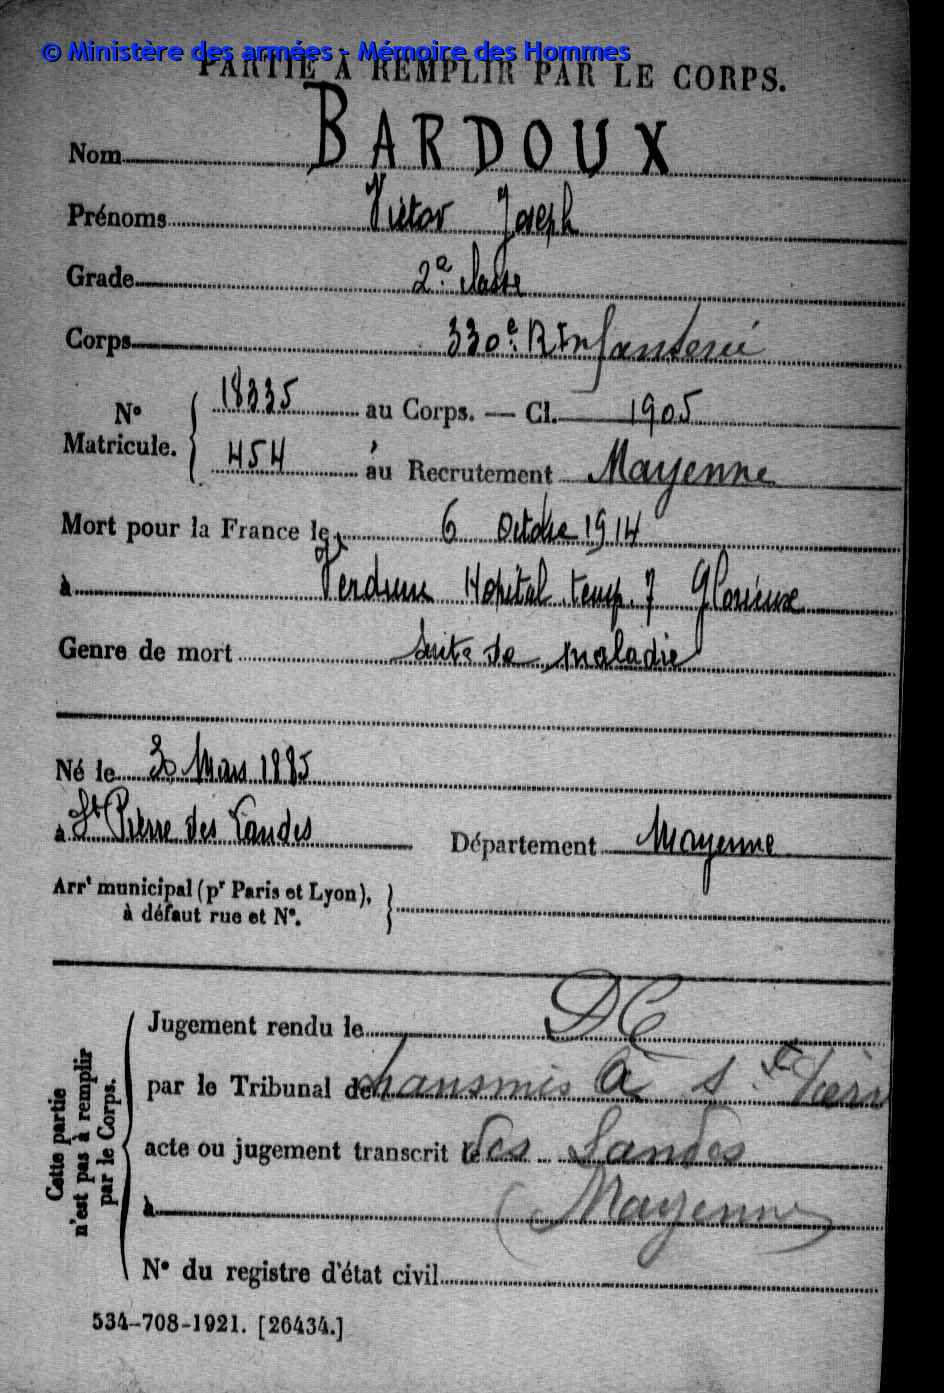 © Ministère des armées - Mémoire des Hommes
PARTIE À REMPLIR PAR LE CORPS.
Nom BARDOUX
Prénoms Victor Joseph
Grade 2e classe
Corps 330e R Infanterie
No Matricule. { 18335 au Corps. — Cl. 1905
454 au Recrutement Mayenne
Mort pour la France le 6 Octobre 1914
à Verdun Hopital temp. 7 Glorieux
Genre de mort suite de maladie
Né le 30 Mars 1885
à St Pierre des Landes Département Mayenne
Arrt municipal (pr Paris et Lyon),
à défaut rue et No.
Cette partie n'est pas à remplir par le Corps.
Jugement rendu le DC
par le Tribunal de transmis à St Pierre
acte ou jugement transcrit le des Landes
à (Mayenne)
No du registre d'état civil
534-708-1921. [26434.]